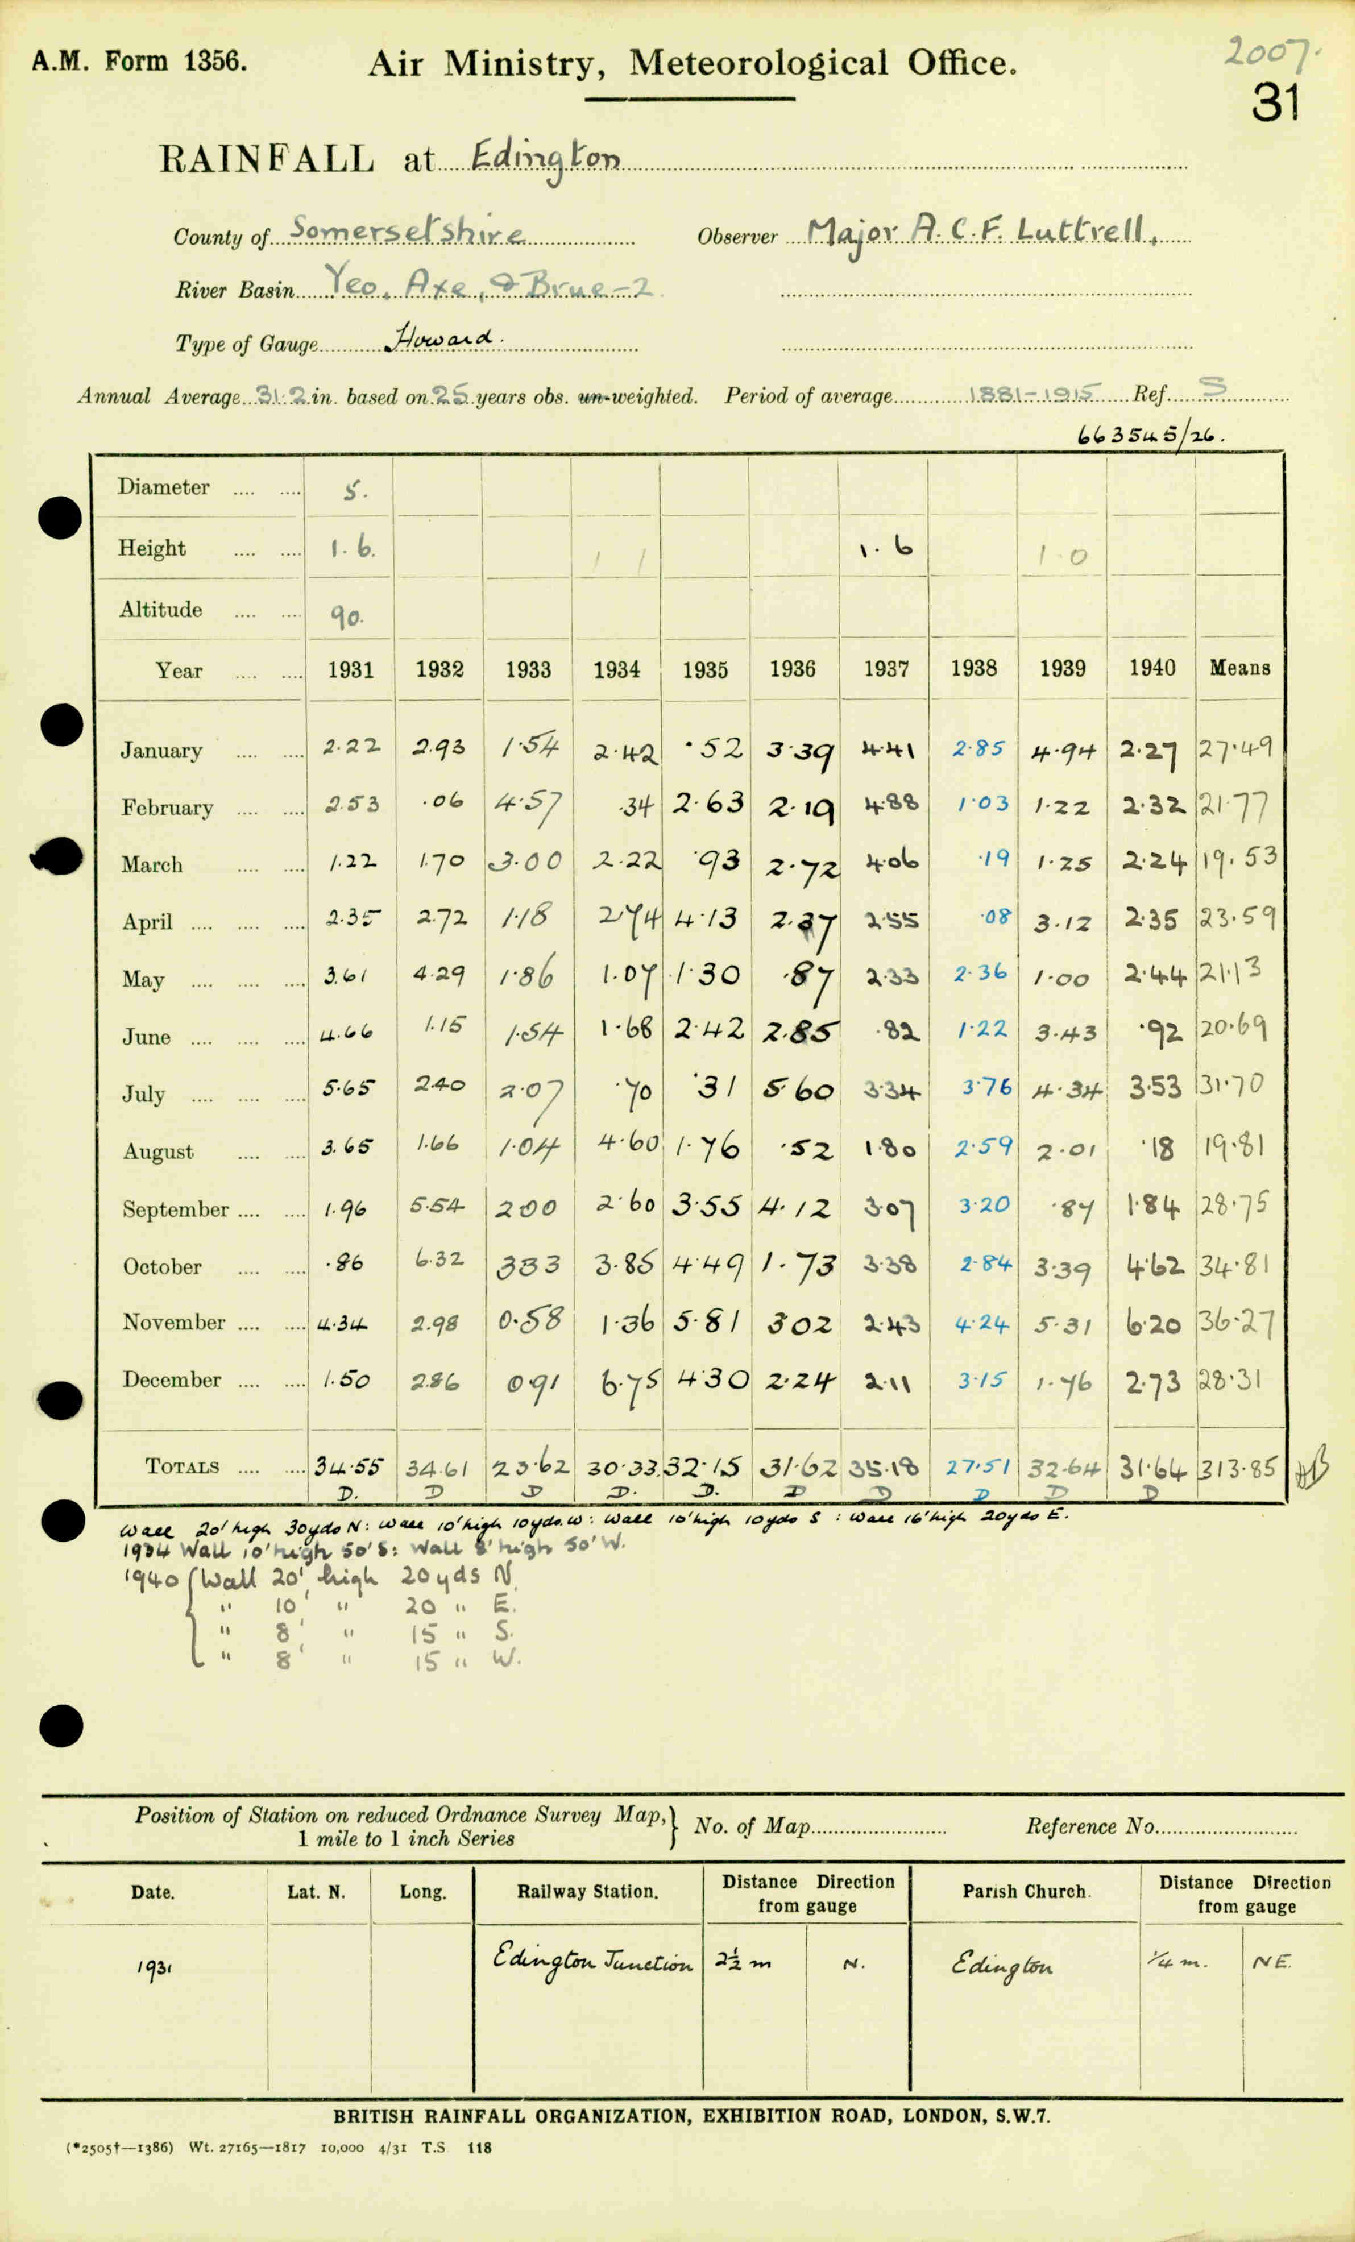 A.M. Form 1356.
Air Ministry, Meteorological Office.
2007.
31
RAINFALL at Edington
County of Somersetshire Observer Major A.C.F. Luttrell,
River Basin Yeo, Axe, & Brue-2
Type of Gauge Howard.
Annual Average 31.2 in. based on 25 years obs. un-weighted. Period of average 1881-1915 Ref. S
663545/26.
Diameter 5.
Height 1.6. 1 1 1.6 1.0
Altitude 90.
Year 1931 1932 1933 1934 1935 1936 1937 1938 1939 1940 Means
January 2.22 2.93 1.54 2.42 .52 3.39 4.41 2.85 4.94 2.27 27.49
February 2.53 .06 4.57 .34 2.63 2.19 4.88 1.03 1.22 2.32 21.77
March 1.22 1.70 3.00 2.22 .93 2.72 4.06 .19 1.25 2.24 19.53
April 2.35 2.72 1.18 2.74 4.13 2.37 2.55 .08 3.12 2.35 23.59
May 3.61 4.29 1.86 1.07 1.30 .87 2.33 2.36 1.00 2.44 21.13
June 4.66 1.15 1.54 1.68 2.42 2.85 .82 1.22 3.43 .92 20.69
July 5.65 2.40 2.07 .70 .31 5.60 3.34 3.76 4.34 3.53 31.70
August 3.65 1.66 1.04 4.60 1.76 .52 1.80 2.59 2.01 .18 19.81
September 1.96 5.54 2.00 2.60 3.55 4.12 3.07 3.20 .87 1.84 28.75
October .86 6.32 333 3.85 4.49 1.73 3.38 2.84 3.39 4.62 34.81
November 4.34 2.98 0.58 1.36 5.81 302 2.43 4.24 5.31 6.20 36.27
December 1.50 2.86 0.91 6.75 4.30 2.24 2.11 3.15 1.76 2.73 28.31
TOTALS 34.55 34.61 23.62 30.33 32.15 31.62 35.18 27.51 32.64 31.64 313.85
D. D D D. D. D D D D D
Wall 20' high 30yds N: Wall 10' high 10yds. W: Wall 10' high 10yds S : Wall 16' high 20yds E.
1934 Wall 10' high 50' S: Wall 8' high 50' W.
1940 Wall 20' high 20 yds N.
" 10' " 20 " E.
" 8' " 15 " S.
" 8' " 15 " W.
Position of Station on reduced Ordnance Survey Map, No. of Map Reference No.
1 mile to 1 inch Series
Date. Lat. N. Long. Railway Station. Distance Direction from gauge Parish Church. Distance Direction from gauge
1931 Edington Junction 2½ m N. Edington ¼ m. NE.
BRITISH RAINFALL ORGANIZATION, EXHIBITION ROAD, LONDON, S.W.7.
(*2505†—1386) Wt. 27165—1817 10,000 4/31 T.S 118